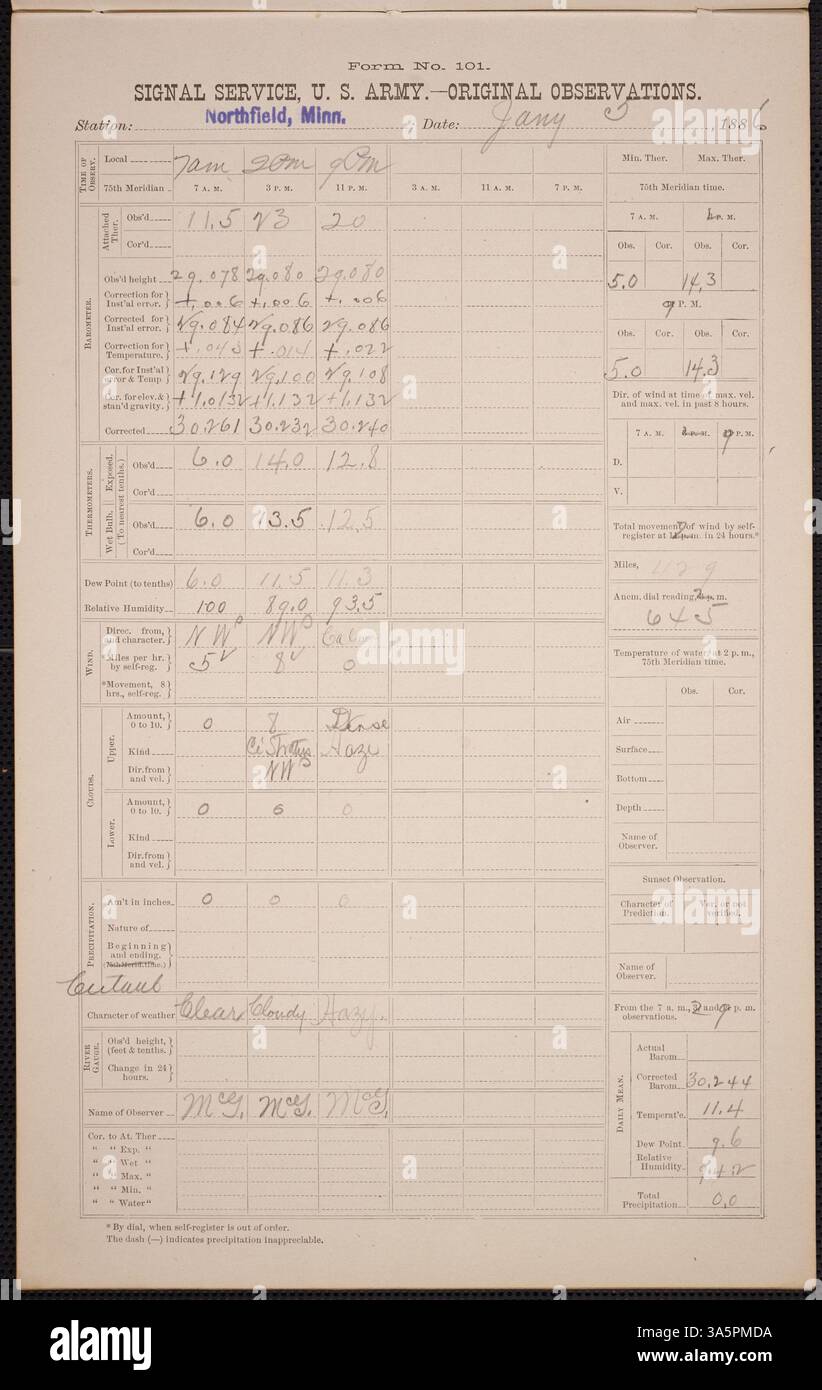 Form No. 101.
SIGNAL SERVICE, U. S. ARMY.—ORIGINAL OBSERVATIONS.
Station: Northfield, Minn. Date: Jany 5, 1886
TIME OF OBSERV.
Local 7am 2Pm 9Pm
75th Meridian 7 A. M. 3 P. M. 11 P. M. 3 A. M. 11 A. M. 7 P. M.
BAROMETER.
Attached Ther.
Obs'd 11.5 23 20
Cor'd
Obs'd height 29.078 29.080 29.080
Correction for Inst'al error. +.006 +.006 +.006
Corrected for Inst'al error. 29.084 29.086 29.086
Correction for Temperature. +.043 +.014 +.022
Cor. for Inst'al error & Temp 29.129 29.100 29.108
Cor. for elev. & stan'd gravity. +1.0132 +1.132 +1.132
Corrected 30.261 30.232 30.240
THERMOMETERS.
(To nearest tenths.)
Exposed.
Obs'd 6.0 14.0 12.8
Cor'd
Wet Bulb.
Obs'd 6.0 13.5 12.5
Cor'd
Dew Point (to tenths) 6.0 11.5 11.3
Relative Humidity 100 89.0 93.5
WIND.
Direc. from, and character. NW NW Calm
*Miles per hr. by self-reg. 5 8 0
*Movement, 8 hrs., self-reg.
CLOUDS.
Upper.
Amount, 0 to 10. 0 8 Dense
Kind Ci Stratus Haze
Dir. from and vel. NW
Lower.
Amount, 0 to 10. 0 0 0
Kind
Dir. from and vel.
PRECIPITATION.
Am't in inches 0 0 0
Nature of
Beginning and ending.
(75th Merid. time.)
Central
Character of weather Clear Cloudy Hazy.
RIVER GAUGE.
Obs'd height, (feet & tenths.)
Change in 24 hours.
Name of Observer McG. McG. McG.
Cor. to At. Ther
" " Exp. "
" " Wet "
" " Max. "
" " Min. "
" " Water"
* By dial, when self-register is out of order.
The dash (—) indicates precipitation inappreciable.
Min. Ther. Max. Ther.
75th Meridian time.
7 A. M. P. M.
Obs. Cor. Obs. Cor.
5.0 14.3
9 P. M.
Obs. Cor. Obs. Cor.
5.0 14.3
Dir. of wind at time of max. vel. and max. vel. in past 8 hours.
7 A. M. 3 P. M. 9 P. M.
D.
V.
Total movement of wind by self-register at 2 p.m. in 24 hours.*
Miles, 429
Anem. dial reading, 2 p. m.
645
Temperature of water at 2 p. m., 75th Meridian time.
Obs. Cor.
Air
Surface
Bottom
Depth
Name of Observer.
Sunset Observation.
Character of Prediction. Ver. or not verified.
Name of Observer.
From the 7 a. m., 2 and 9 p. m. observations.
DAILY MEAN.
Actual Barom.
Corrected Barom. 30.244
Temperat'e. 11.4
Dew Point 9.6
Relative Humidity. 94.2
Total Precipitation 0.0
alamy
Image ID: 3A5PMDA
www.alamy.com